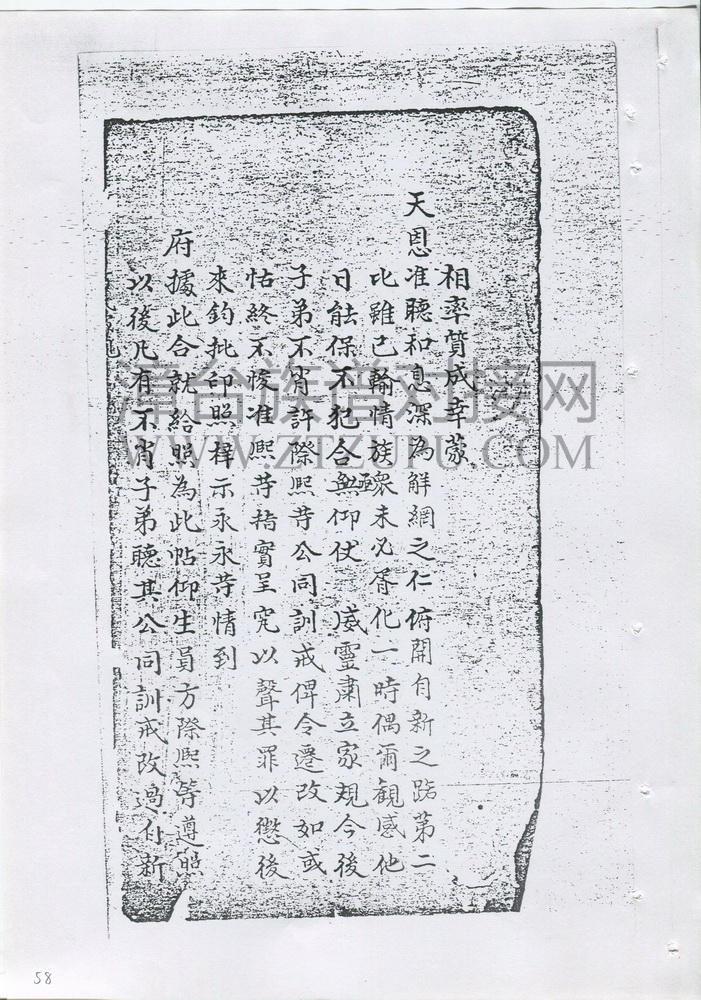 相率質成幸蒙
天恩准聽和息深為觧網之仁俯開自新之路第二
比雖已輸情族眾未必胥化一時偶爾觀感他
日能保不犯合無仰仗 威靈肅立家規今後
子弟不肖許際熙等公同訓戒俾令遷改如或
怙終不悛准熙等指實呈究以聲其罪以懲後
來鈞批印照擇示永永等情到
府據此合就給照為此帖仰生員方際熙等遵照
以後凡有不肖子弟聽其公同訓戒改過自新
漳台族谱对接网
WWW.ZTZUPU.COM
58